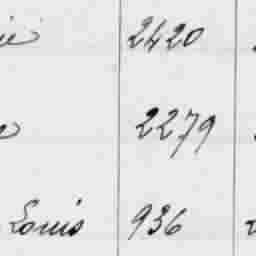 2420
2279
Louis 936